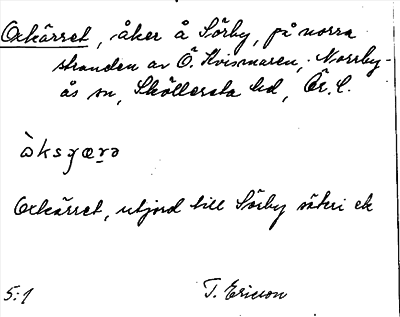 Oxkärret, åker å Sörby, på norra
stranden av Ö. Kvismaren, Norrby-
ås sn, Sköllersta hd, Ör. l.
Oxkärret, utjord till Sörby säteri ek
5:1 T. Ericson